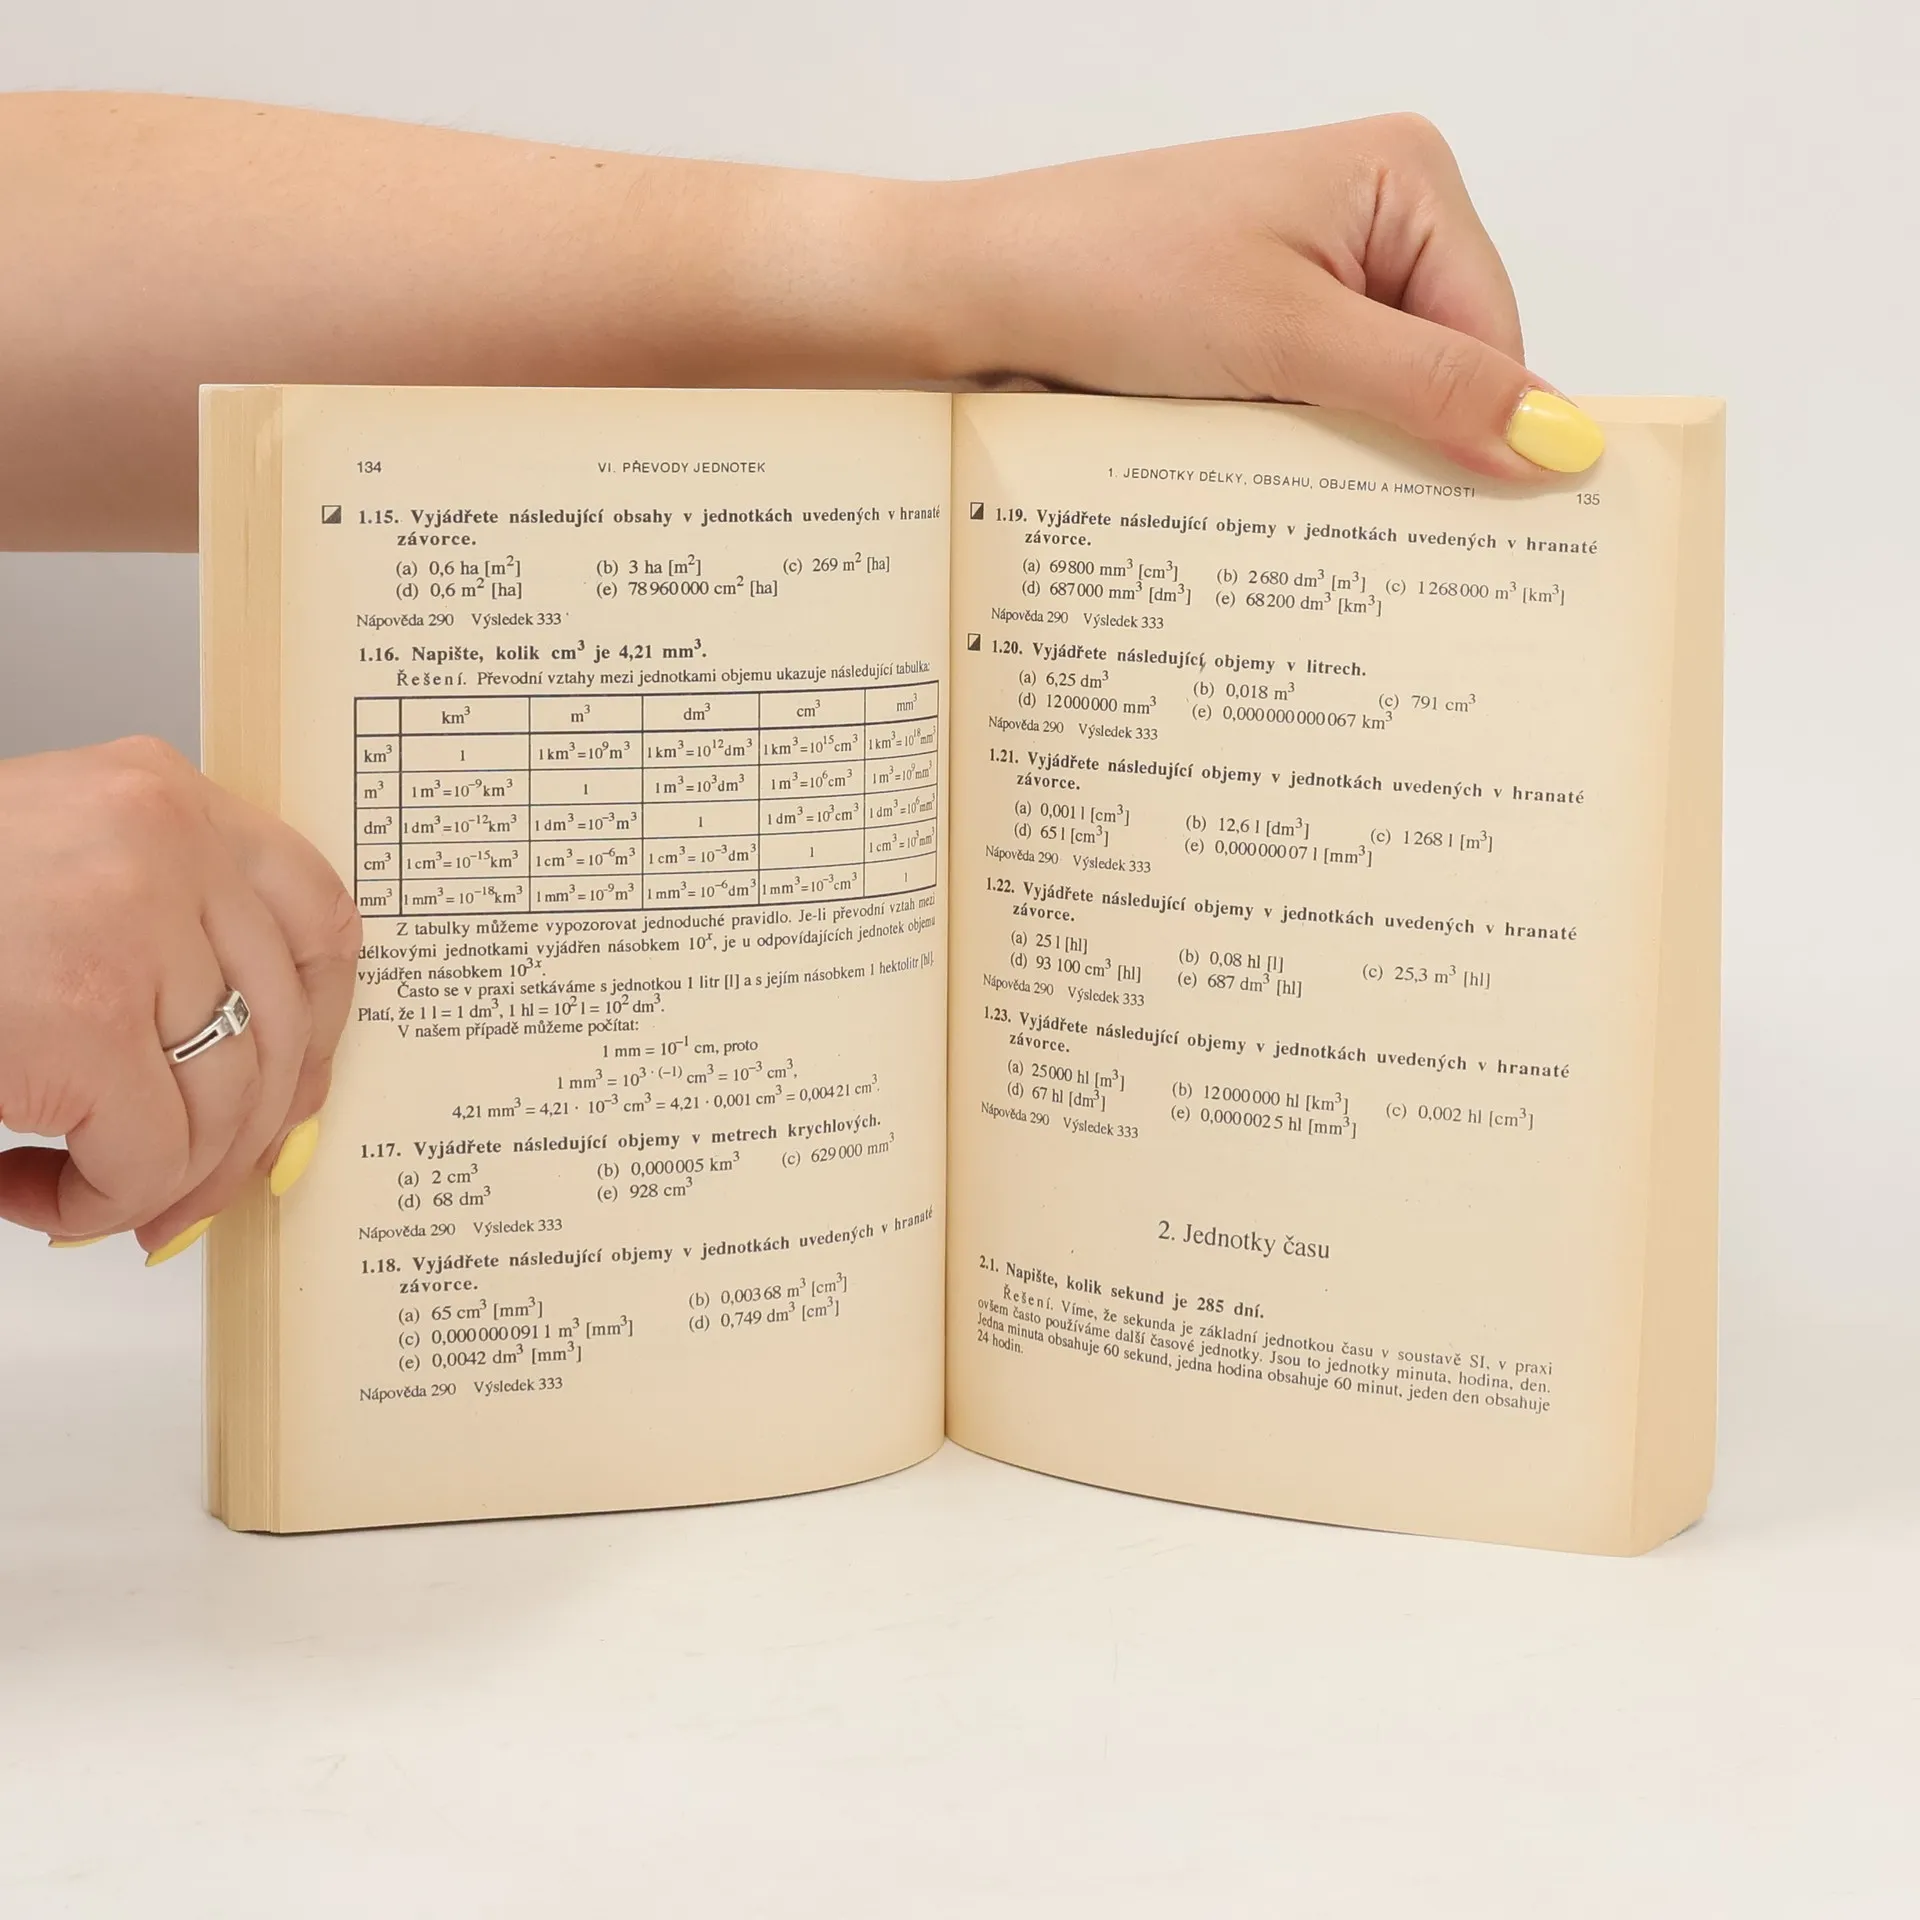 134
VI. PŘEVODY JEDNOTEK
1.15. Vyjádřete následující obsahy v jednotkách uvedených v hranaté
závorce.
(a) 0,6 ha [m²] (b) 3 ha [m²] (c) 269 m² [ha]
(d) 0,6 m² [ha] (e) 78 960 000 cm² [ha]
Nápověda 290 Výsledek 333
1.16. Napište, kolik cm³ je 4,21 mm³.
Řešení. Převodní vztahy mezi jednotkami objemu ukazuje následující tabulka:
km³ m³ dm³ cm³ mm³
km³ 1 1 km³=10⁹m³ 1 km³=10¹²dm³ 1 km³=10¹⁵cm³ 1 km³=10¹⁸mm³
m³ 1 m³=10⁻⁹km³ 1 1 m³=10³dm³ 1 m³=10⁶cm³ 1 m³=10⁹mm³
dm³ 1 dm³=10⁻¹²km³ 1 dm³=10⁻³m³ 1 1 dm³=10³cm³ 1 dm³=10⁶mm³
cm³ 1 cm³=10⁻¹⁵km³ 1 cm³=10⁻⁶m³ 1 cm³=10⁻³dm³ 1 1 cm³=10³mm³
mm³ 1 mm³=10⁻¹⁸km³ 1 mm³=10⁻⁹m³ 1 mm³=10⁻⁶dm³ 1 mm³=10⁻³cm³ 1
Z tabulky můžeme vypozorovat jednoduché pravidlo. Je-li převodní vztah mezi
délkovými jednotkami vyjádřen násobkem 10ˣ, je u odpovídajících jednotek objemu
vyjádřen násobkem 10³ˣ.
Často se v praxi setkáváme s jednotkou 1 litr [l] a s jejím násobkem 1 hektolitr [hl].
Platí, že 1 l = 1 dm³, 1 hl = 10² l = 10² dm³.
V našem případě můžeme počítat:
1 mm = 10⁻¹ cm, proto
1 mm³ = 10³ ˙ ⁽⁻¹⁾ cm³ = 10⁻³ cm³,
4,21 mm³ = 4,21 · 10⁻³ cm³ = 4,21 · 0,001 cm³ = 0,004 21 cm³.
1.17. Vyjádřete následující objemy v metrech krychlových.
(a) 2 cm³ (b) 0,000 005 km³ (c) 629 000 mm³
(d) 68 dm³ (e) 928 cm³
Nápověda 290 Výsledek 333
1.18. Vyjádřete následující objemy v jednotkách uvedených v hranaté
závorce.
(a) 65 cm³ [mm³] (b) 0,003 68 m³ [cm³]
(c) 0,000 000 091 1 m³ [mm³] (d) 0,749 dm³ [cm³]
(e) 0,0042 dm³ [mm³]
Nápověda 290 Výsledek 333
1. JEDNOTKY DÉLKY, OBSAHU, OBJEMU A HMOTNOSTI
135
1.19. Vyjádřete následující objemy v jednotkách uvedených v hranaté
závorce.
(a) 69 800 mm³ [cm³] (b) 2 680 dm³ [m³] (c) 1 268 000 m³ [km³]
(d) 687 000 mm³ [dm³] (e) 68 200 dm³ [km³]
Nápověda 290 Výsledek 333
1.20. Vyjádřete následující objemy v litrech.
(a) 6,25 dm³ (b) 0,018 m³ (c) 791 cm³
(d) 12 000 000 mm³ (e) 0,000 000 000 067 km³
Nápověda 290 Výsledek 333
1.21. Vyjádřete následující objemy v jednotkách uvedených v hranaté
závorce.
(a) 0,001 l [cm³] (b) 12,6 l [dm³] (c) 1 268 l [m³]
(d) 65 l [cm³] (e) 0,000 000 07 l [mm³]
Nápověda 290 Výsledek 333
1.22. Vyjádřete následující objemy v jednotkách uvedených v hranaté
závorce.
(a) 25 l [hl] (b) 0,08 hl [l] (c) 25,3 m³ [hl]
(d) 93 100 cm³ [hl] (e) 687 dm³ [hl]
Nápověda 290 Výsledek 333
1.23. Vyjádřete následující objemy v jednotkách uvedených v hranaté
závorce.
(a) 25 000 hl [m³] (b) 12 000 000 hl [km³] (c) 0,002 hl [cm³]
(d) 67 hl [dm³] (e) 0,000 002 5 hl [mm³]
Nápověda 290 Výsledek 333
2. Jednotky času
2.1. Napište, kolik sekund je 285 dní.
Řešení. Víme, že sekunda je základní jednotkou času v soustavě SI, v praxi
ovšem často používáme další časové jednotky. Jsou to jednotky minuta, hodina, den.
Jedna minuta obsahuje 60 sekund, jedna hodina obsahuje 60 minut, jeden den obsahuje
24 hodin.